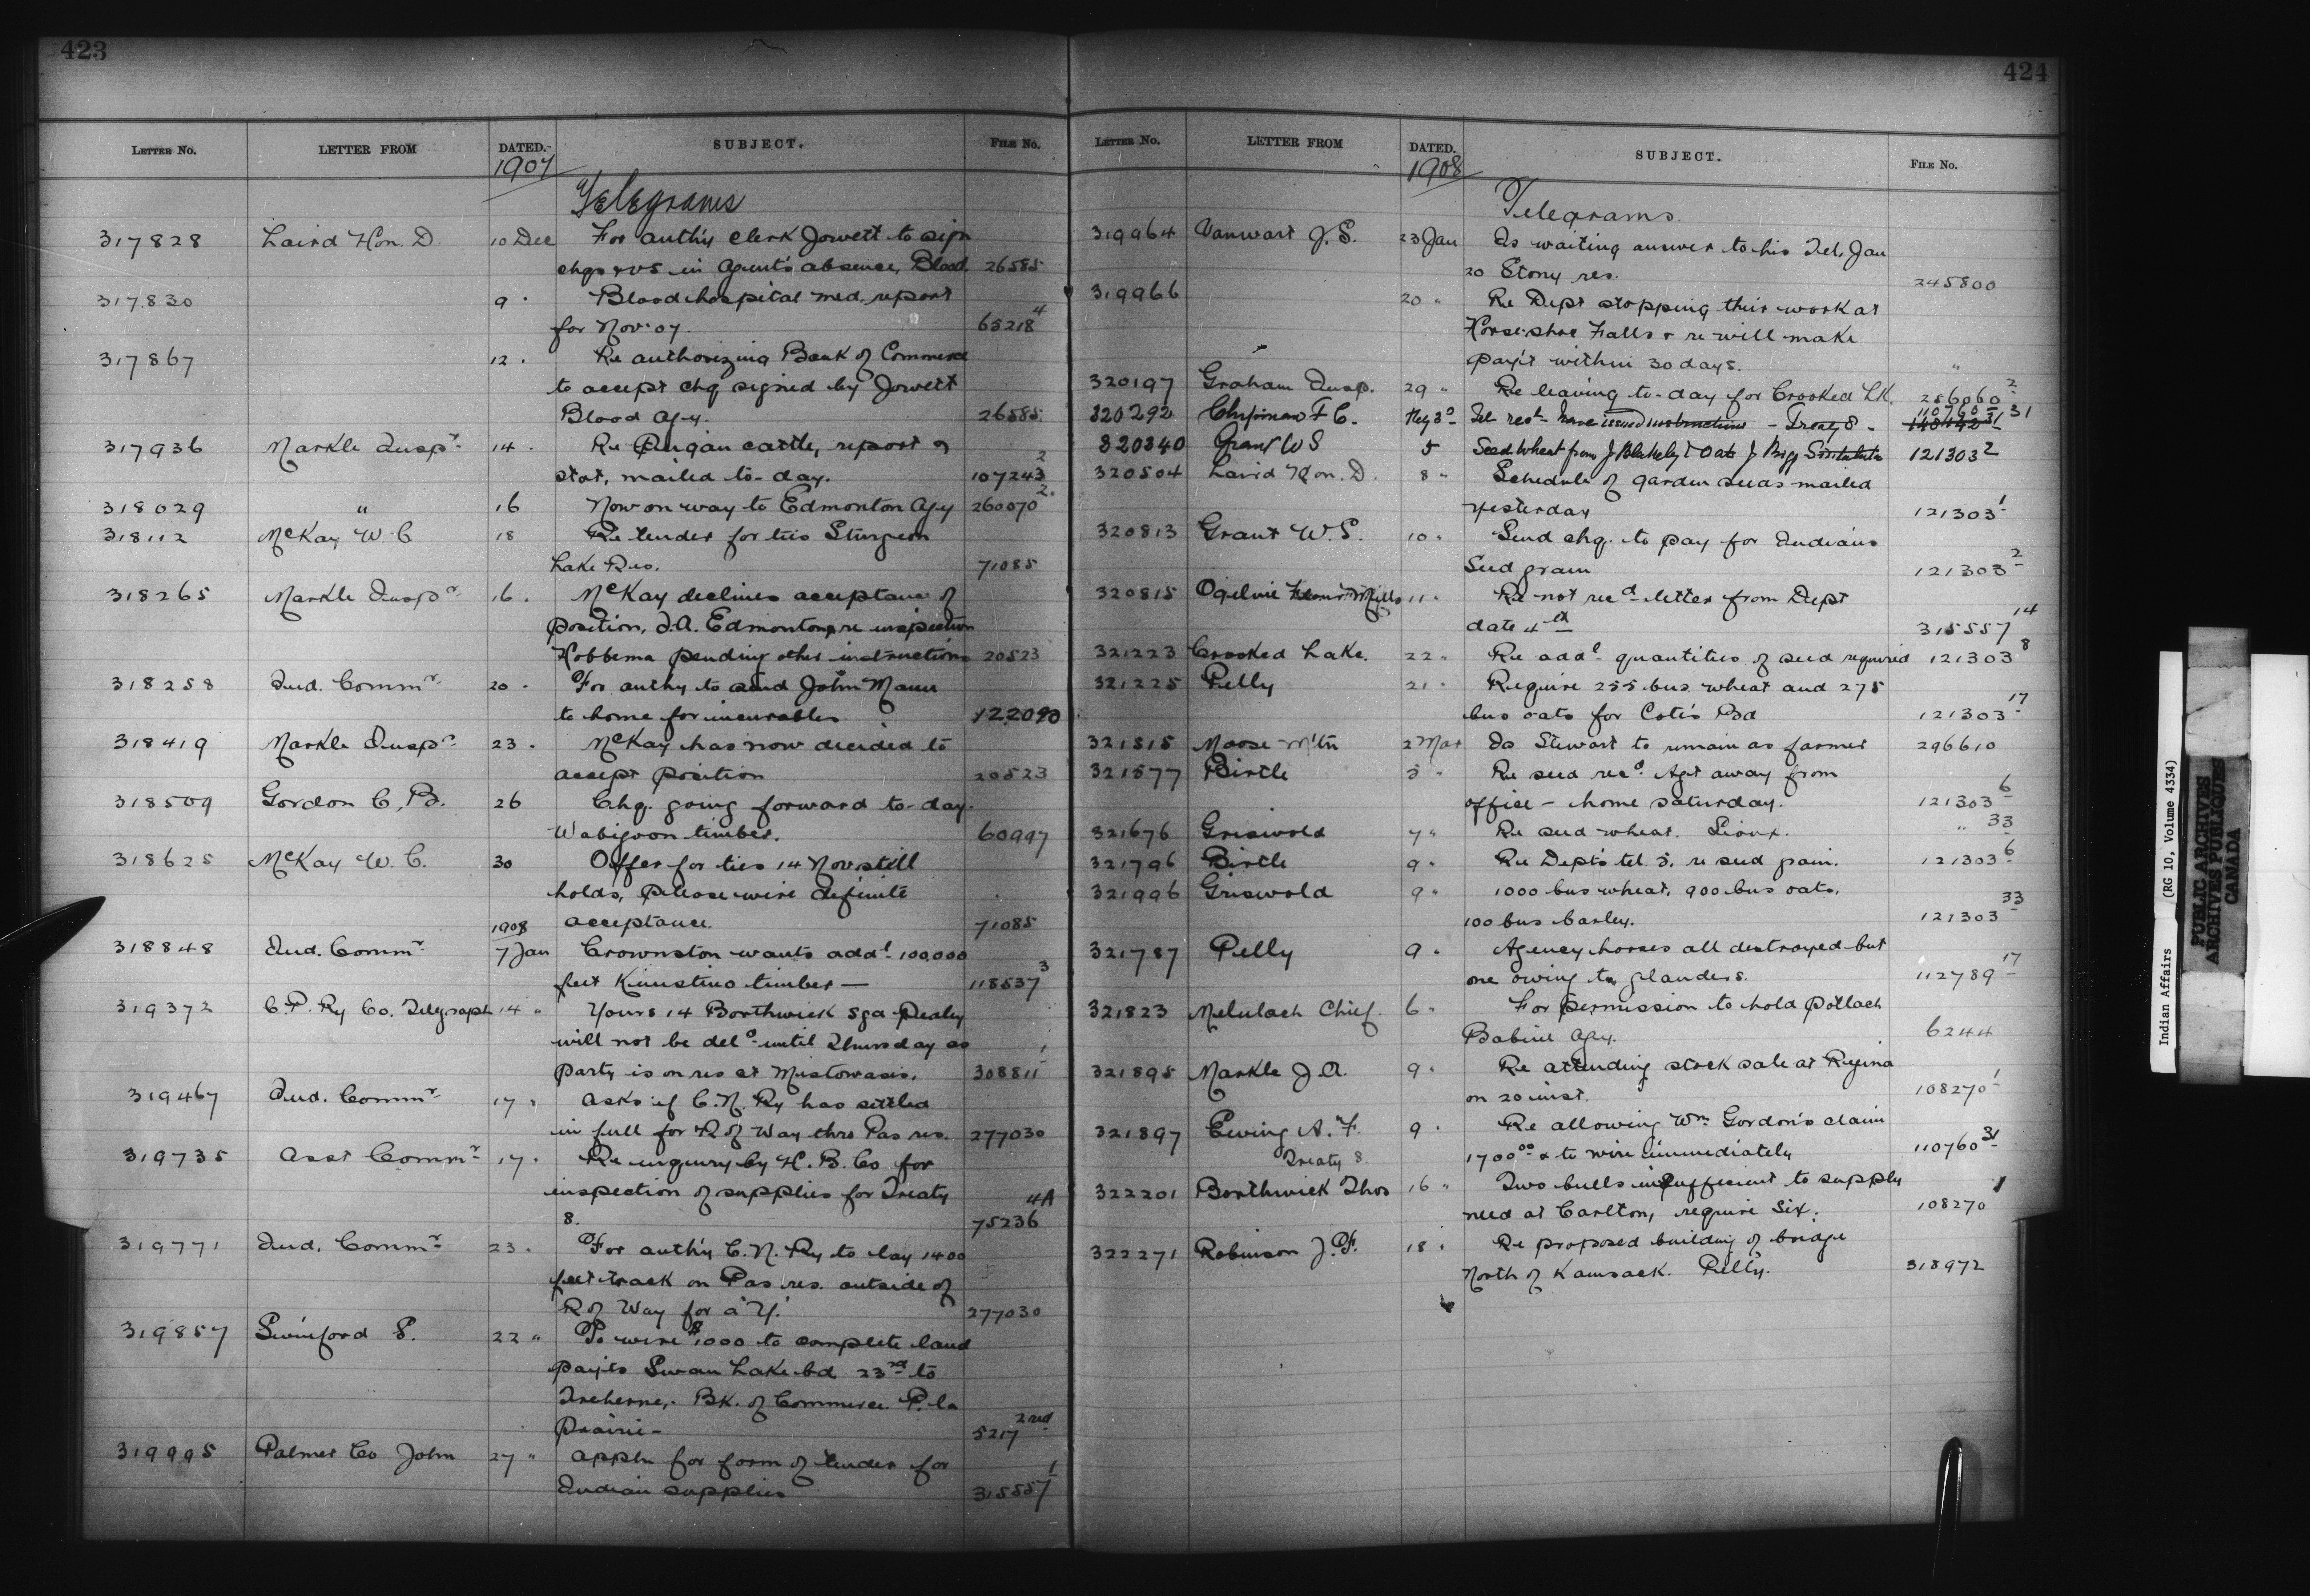 423
LETTER NO. LETTER FROM DATED. SUBJECT. FILE NO.
1907
Telegrams
317828 Laird Hon. D. 10 Dec For auth'y clerk Jowett to sign
chqs & vs in Agent's absence, Blood. 26585
317830 9 " Blood hospital med. report
for Nov. 07. 65218 4
317867 12 " Re authorizing Bank of Commerce
to accept chq signed by Jowett
Blood Agy. 26585
317936 Markle Inspr 14 " Re Peigan cattle, report &
stat, mailed to-day. 107243 2
318029 " 16 Now on way to Edmonton Agy 260070 2
318112 McKay W. C. 18 Re tender for ties Sturgeon
Lake Res. 71085
318265 Markle Inspr 16 " McKay declines acceptance of
position, I.A. Edmonton, re inspection
Hobbema pending other instructions 20523
318258 Ind. Commr 20 " For auth'y to send John Mann
to home for incurables 122090
318419 Markle Inspr 23 " McKay has now decided to
accept position 20523
318509 Gordon C. B. 26 Chq. going forward to-day.
Wabigoon timber. 60997
318625 McKay W. C. 30 Offer for ties 14 Nov still
holds, please wire definite
1908 acceptance. 71085
318848 Ind. Commr 7 Jan Crownston wants addl 100,000
feet Kinistino timber — 118537 3
319372 C. P. Ry Co. Telegraph 14 " Yours 14 Borthwick sgd
will not be deld until Thursday as
party is on res at Mistowasis. 308811 1
319467 Ind. Commr 17 " Asks if C. N. Ry has settled
in full for R of Way thro Pas res. 277030
319735 Asst Commr 17 " Re inquiry by H. B. Co for
inspection of supplies for Treaty
8. 75236 4A
319771 Ind. Commr 23 " For auth'y C. N. Ry to lay 1400
feet track on Pas res. outside of
R of Way for a "Y." 277030
319857 Swinford S. 22 " To wire $1000 to complete land
pay'ts Swan Lake bd. 23rd to
Treherne, Bk. of Commerce P. la
Prairie - 5217 2nd
319995 Palmer Co John 27 " Appln for form of tender for
Indian supplies 315557 1
424
LETTER NO. LETTER FROM DATED. SUBJECT. FILE NO.
1908
Telegrams.
319964 Vanwart J. S. 23 Jan Is waiting answer to his Tel. Jan
20 Stony res. 245800
319966 20 " Re Dept stopping their work at
Horse-shoe Falls & re will make
pay't within 30 days. "
320197 Graham Insp. 29 " Re leaving to-day for Crooked Lk. 256060 2
320292 F C. Feby 3 - Tel recd have issued instructions - Treaty 8 - 110760 31
320340 Grant W S 5 Seed Wheat from J Blakely & Oats J 121303 2
320504 Laird Hon. D. 8 " Schedule of garden seeds mailed
yesterday 121303 1
320813 Grant W. S. 10 " Send chq. to pay for Indians
Seed grain 121303 2
320815 Ogilvie Flour Mills 11 " Re not recd letter from Dept
date 4th 315557 14
321223 Crooked Lake. 22 " Re addl quantities of seed required 121303 8
321225 Pelly 21 " Require 255 bus. wheat and 275
bus oats for Cote's Bd 121303 17
321515 Moose M'tn 2 Mar Is Stewart to remain as farmer 296610
321577 Birtle 5 " Re seed recd. Agt away from
office - home Saturday. 121303 6
321676 Griswold 7 " Re seed wheat. Sioux. " 33
321796 Birtle 9 " Re Dept's tel. 5. re seed grain. 121303 6
321996 Griswold 9 " 1000 bus wheat, 900 bus oats,
100 bus barley. 121303 33
321787 Pelly 9 " Agency horses all destroyed but
one owing to glanders. 112789 17
321823 Melulach Chief. 6 " For permission to hold potlach
Babine Agy. 6244
321895 Markle J. A. 9 " Re attending stock sale at Regina
on 20 inst. 108270 1
321897 Ewing A. F. 9 " Re allowing Wm Gordon's claim
Treaty 8. 1700.00 & to wire immediately 110760 31
322201 Borthwick Thos 16 " Two bulls insufficient to supply
need at Carlton, require six. 108270 1
322271 Robinson J. F. 18 " Re proposed building of bridge
North of Kamsack. Pelly. 318972
Indian Affairs (RG 10, Volume 4334)
PUBLIC ARCHIVES
ARCHIVES PUBLIQUES
CANADA